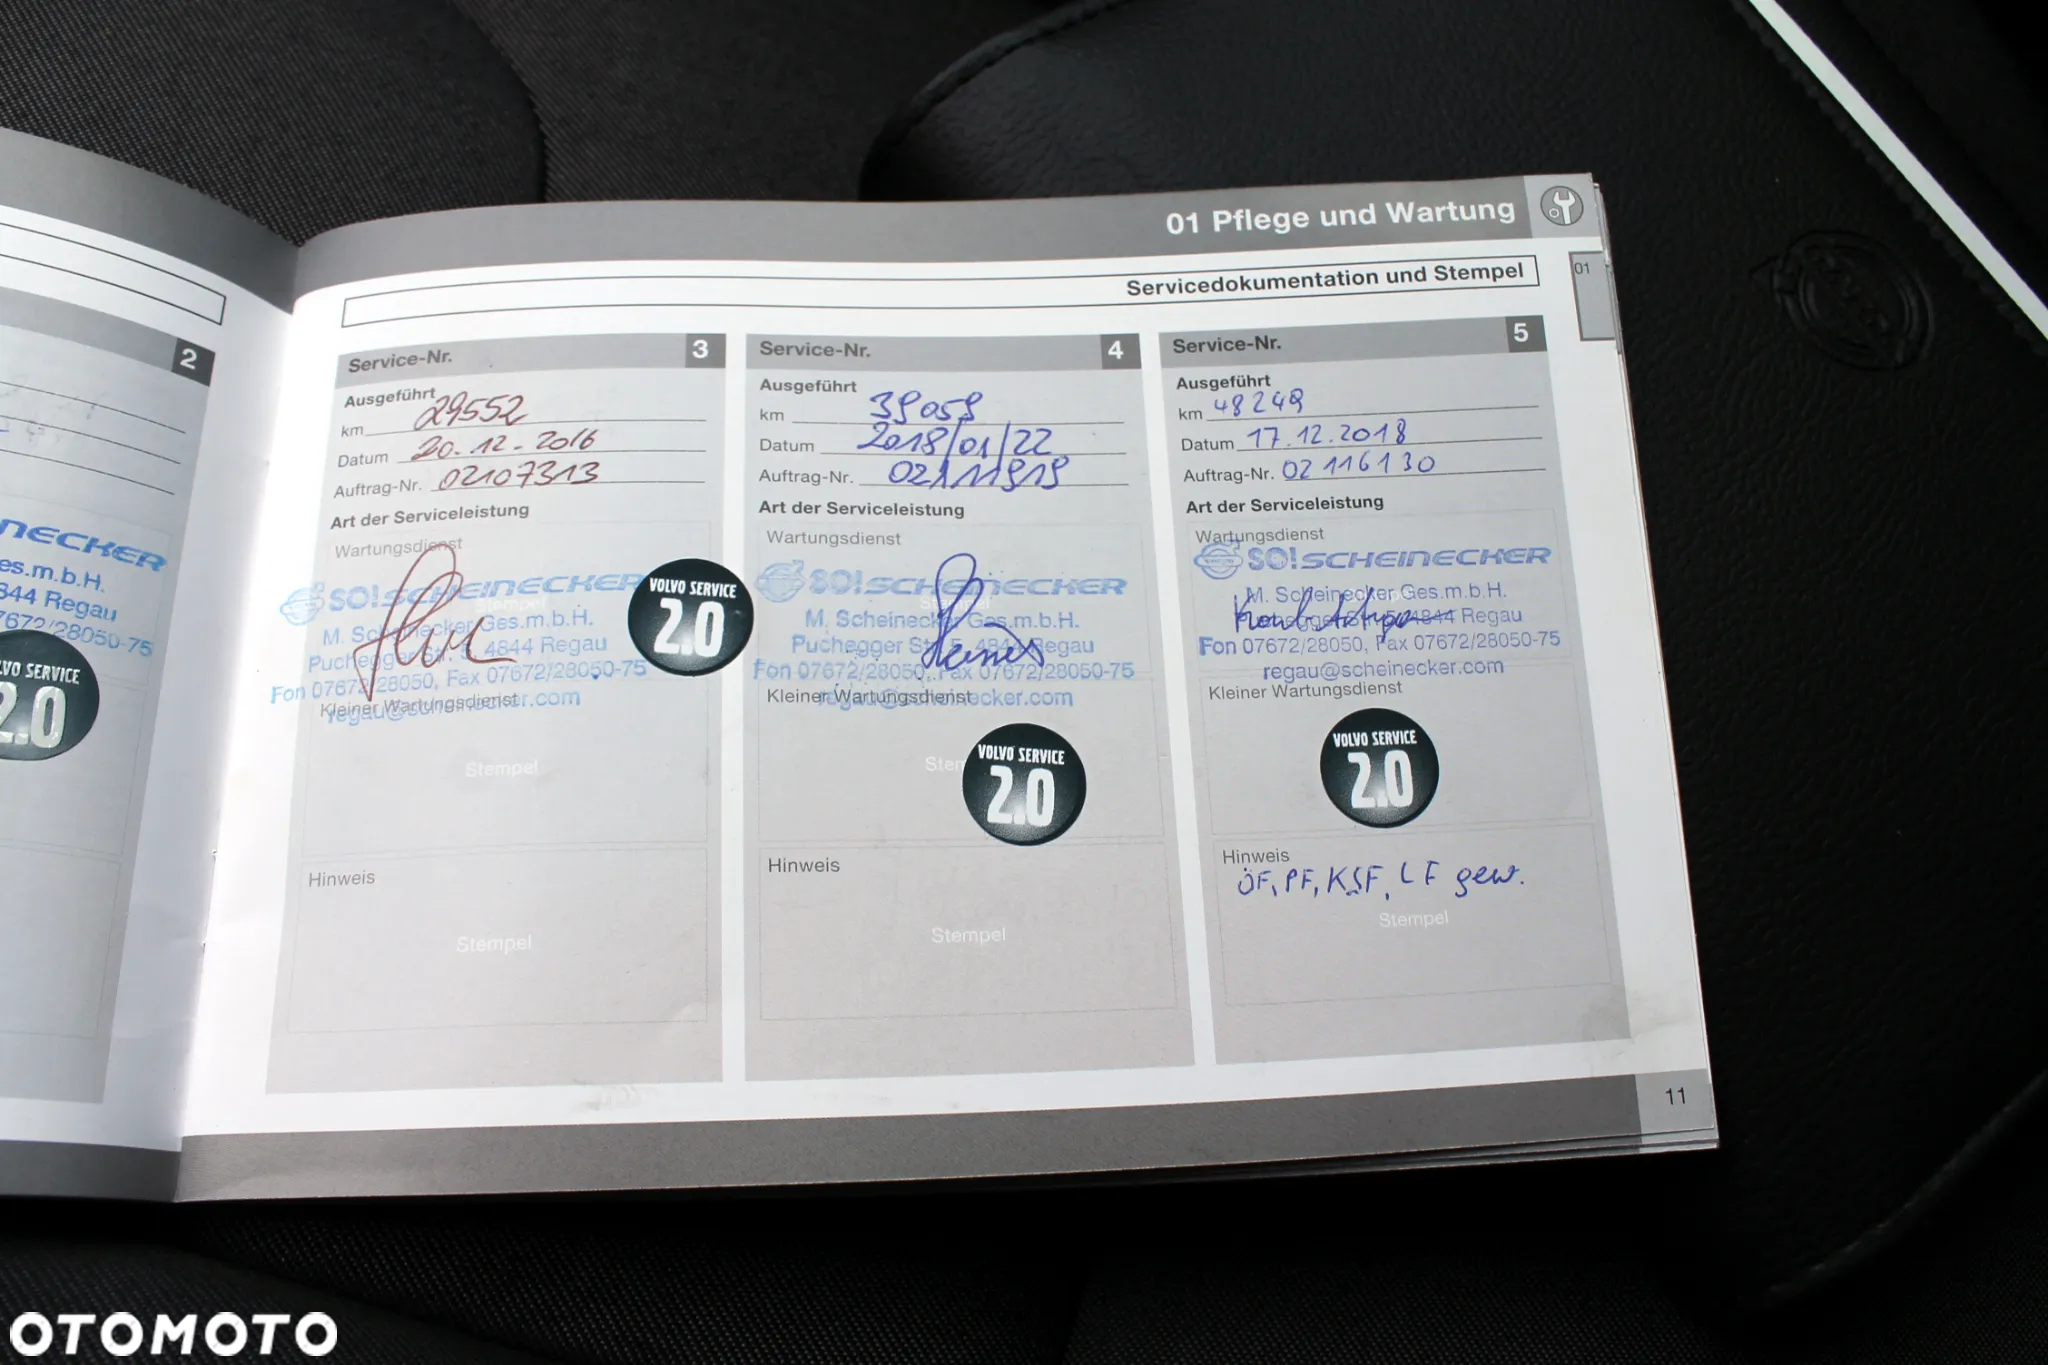 01 Pflege und Wartung
Servicedokumentation und Stempel
01
2
NECKER
es.m.b.H.
844 Regau
7672/28050-75
VO SERVICE
2.0
Service-Nr. 3
Ausgeführt
km 29552
Datum 20.12.-2016
Auftrag-Nr. 02107313
Art der Serviceleistung
Wartungsdienst
SO!SCHEINECKER
Stempel
M. Scheinecker Ges.m.b.H.
Puchegger Str. 5, 4844 Regau
Fon 07672/28050, Fax 07672/28050-75
regau@scheinecker.com
Kleiner Wartungsdienst
VOLVO SERVICE
2.0
Stempel
Hinweis
Stempel
Service-Nr. 4
Ausgeführt
km 39059
Datum 2018/01/22
Auftrag-Nr. 02111919
Art der Serviceleistung
Wartungsdienst
SO!SCHEINECKER
Stempel
M. Scheinecker Ges.m.b.H.
Puchegger Str. 5, 4844 Regau
Fon 07672/28050, Fax 07672/28050-75
regau@scheinecker.com
Kleiner Wartungsdienst
Stem
VOLVO SERVICE
2.0
Hinweis
Stempel
Service-Nr. 5
Ausgeführt
km 48249
Datum 17.12.2018
Auftrag-Nr. 02116130
Art der Serviceleistung
Wartungsdienst
SO!SCHEINECKER
M. Scheinecker Ges.m.b.H.
Puchegger Str. 5, 4844 Regau
Fon 07672/28050, Fax 07672/28050-75
regau@scheinecker.com
Kleiner Wartungsdienst
VOLVO SERVICE
2.0
Hinweis
ÖF, PF, KSF, LF gew.
Stempel
11
OTOMOTO